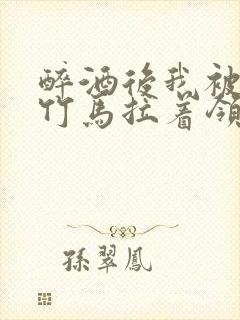 醉酒後我被
竹馬拉着領
孫翠鳳